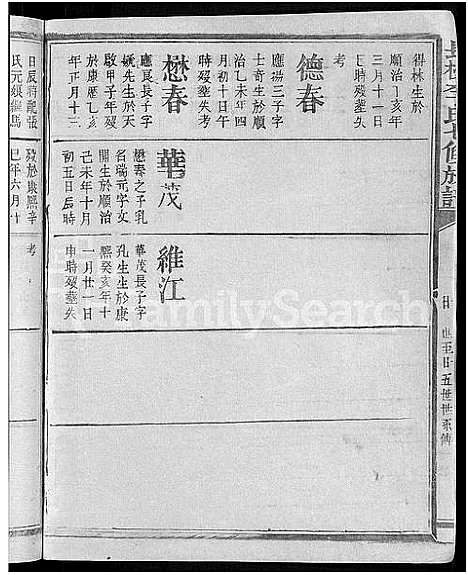 得林生於
順治丁亥年
三月十一日
巳時歿塟失
考
德春
應揚三子字
士奇生於順
治乙未年四
月初十日午
時歿塟失考
懋春
應良長子字
啟甲子年歿
於康熙乙亥
年正月十三
日辰時配張
氏元
華茂
懋春之子乳
名瑞元字文
開生於順治
己未年十月
初五日辰時
歿於康熙辛
巳年六月十
維江
華茂長子字
孔生生於康
熙癸亥年十
一月廿一日
申時歿塟失
考
氏七修族譜
五世世系傳
FamilySearch